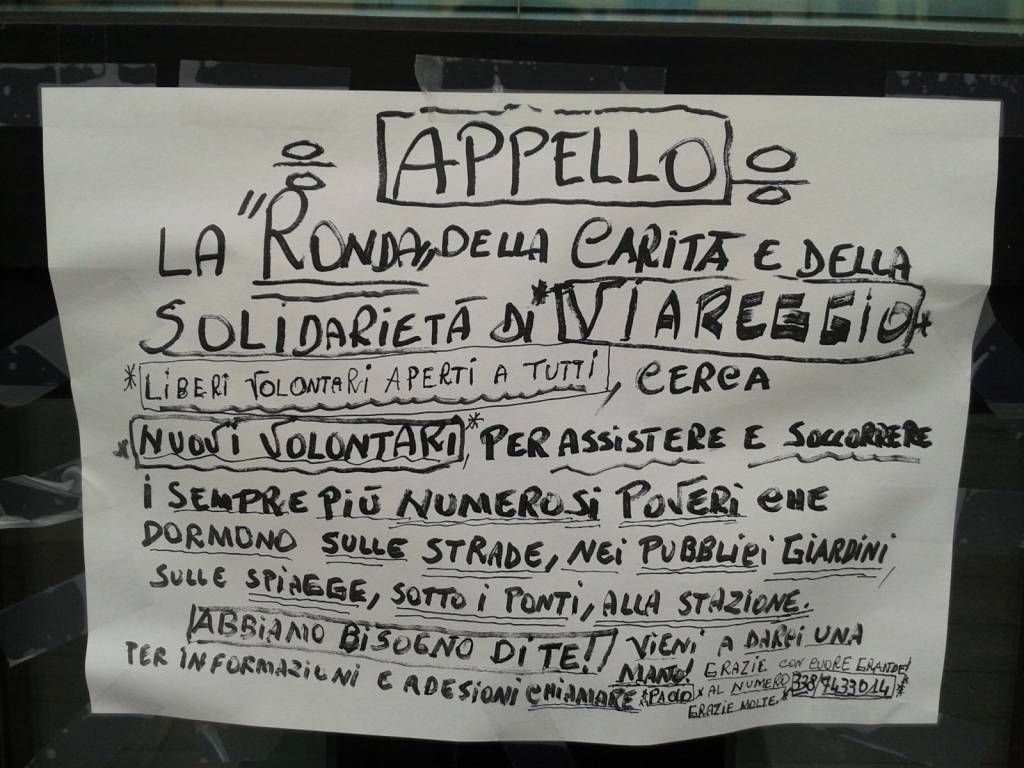 APPELLO
LA "RONDA" DELLA CARITÀ E DELLA
SOLIDARIETÀ DI *VIAREGGIO*
*LIBERI VOLONTARI APERTI A TUTTI, CERCA
*NUOVI VOLONTARI* PER ASSISTERE E SOCCORRERE
I SEMPRE PIÙ NUMEROSI POVERI CHE
DORMONO SULLE STRADE, NEI PUBBLICI GIARDINI,
SULLE SPIAGGE, SOTTO I PONTI, ALLA STAZIONE.
ABBIAMO BISOGNO DI TE!! VIENI A DARCI UNA
MANO! GRAZIE CON CUORE GRANDE!
PER INFORMAZIONI E ADESIONI CHIAMARE *PAOLO* AL NUMERO *338/7433014*
GRAZIE MOLTE.